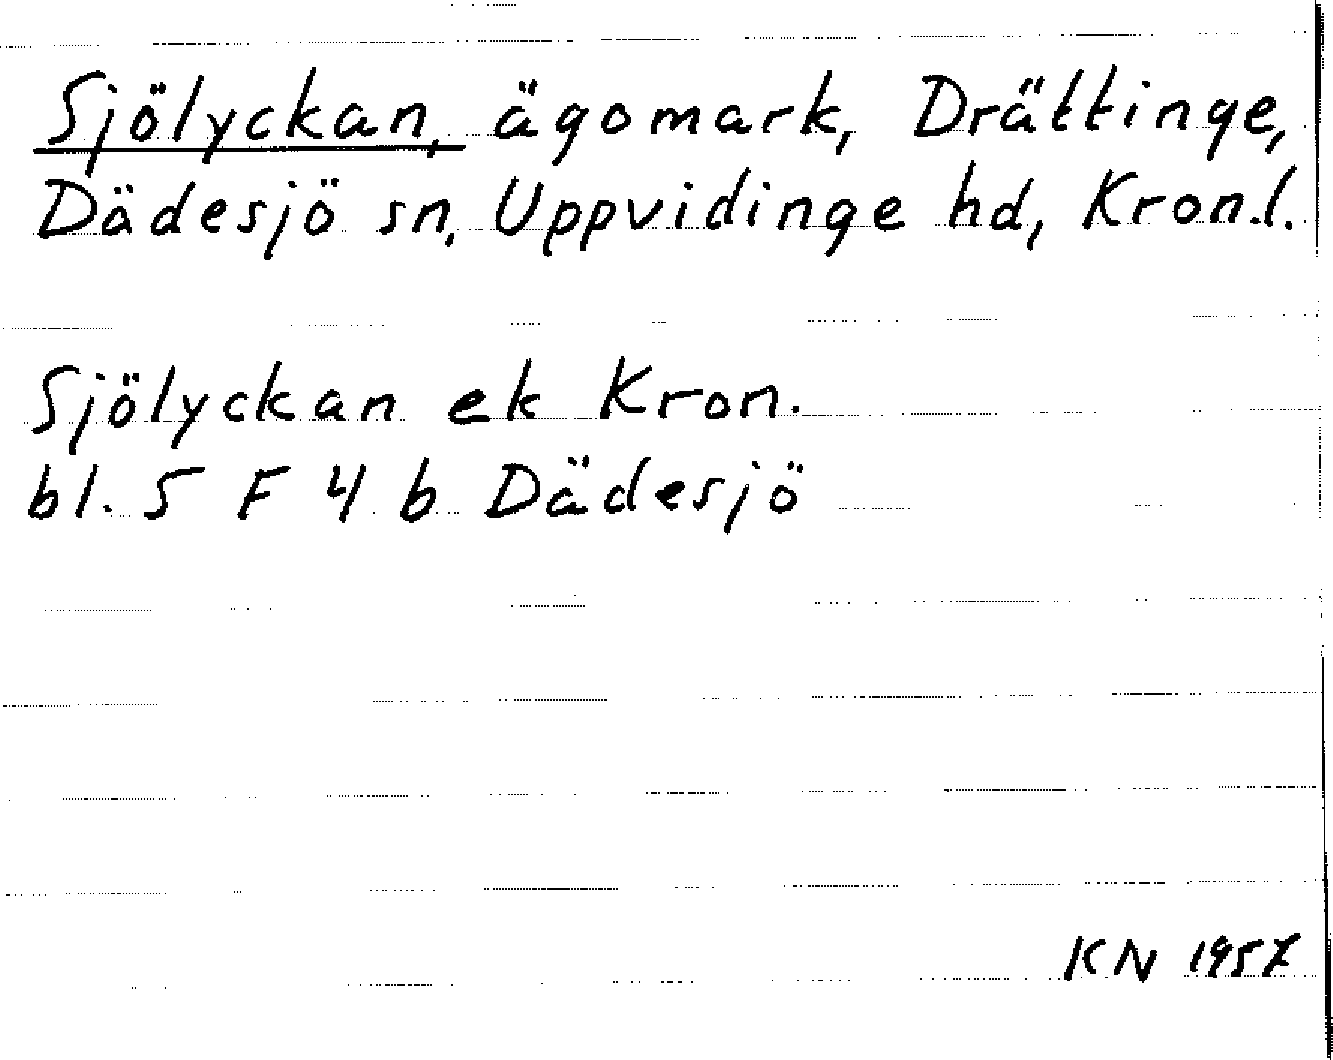 Sjölyckan, ägomark, Drättinge,
Dädesjö sn, Uppvidinge hd, Kron.l.
Sjölyckan ek Kron.
bl. 5 F 4 b Dädesjö
KN 1957